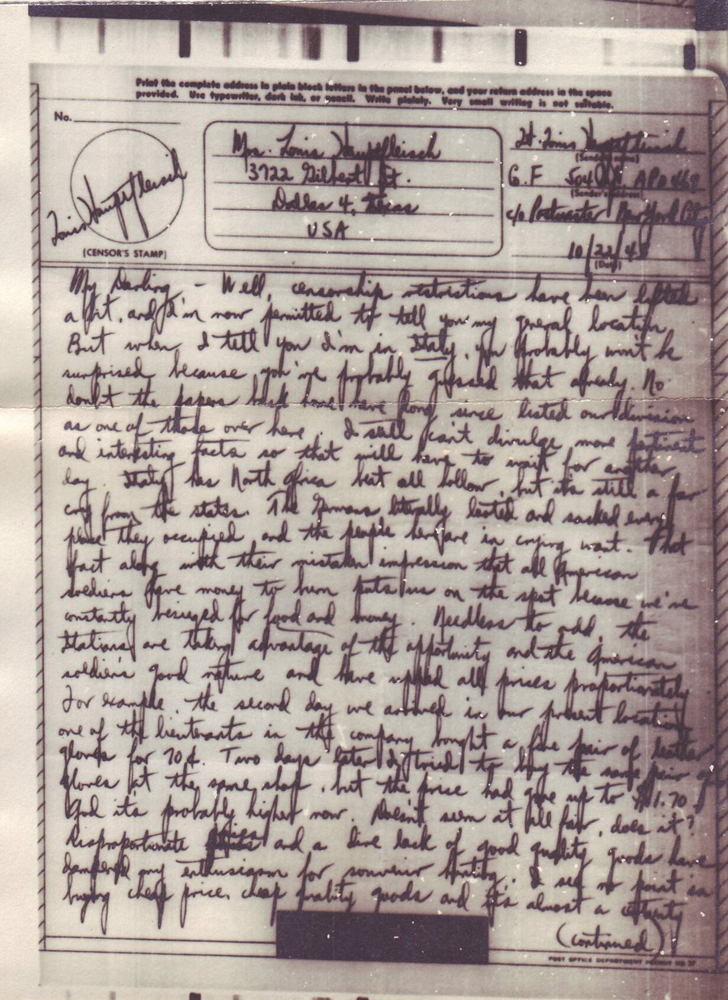 Print the complete address in plain block letters in the panel below, and your return address in the space
provided. Use typewriter, dark ink, or pencil. Write plainly. Very small writing is not suitable.
No.
Mrs. Louis Haupfleisch
3722 Gilbert St.
Dallas 4, Texas
USA
Lt. Louis Haupfleisch
(Sender's name)
APO 469
(Sender's address)
c/o Postmaster New York City
10/22/43
(Date)
Louis Haupfleisch
(CENSOR'S STAMP)
My Darling - Well, censorship restrictions have been lifted
a bit, and I'm now permitted to tell you my general location.
But when I tell you I'm in Italy, you probably won't be
surprised because you've probably guessed that already. No
doubt the papers back home have long since listed our division
as one of those over here. I still can't divulge more pertinent
and interesting facts so that will have to wait for another
day. Italy has North Africa beat all hollow, but its still a far
cry from the states. The Germans literally looted and sacked every
place they occupied, and the people here are in crying want. That
fact along with their mistaken impression that all American
soldiers have money to burn puts us on the spot because we're
constantly besieged for food and money. Needless to add, the
Italians are taking advantage of the opportunity and the American
soldier's good nature and have upped all prices proportionately.
For example, the second day we arrived in our present location
one of the lieutenants in the company bought a fine pair of leather
gloves for 70¢. Two days later I tried to buy the same pair of
gloves at the same shop, but the price had gone up to $1.70.
God its probably higher now. Doesn't seem at all fair, does it?
Disproportionate prices and a dire lack of good quality goods have
dampened my enthusiasm for souvenir hunting. I see no point in
buying cheap price, cheap quality goods and its almost a certainty
(continued)
POST OFFICE DEPARTMENT PERMIT NO. 27